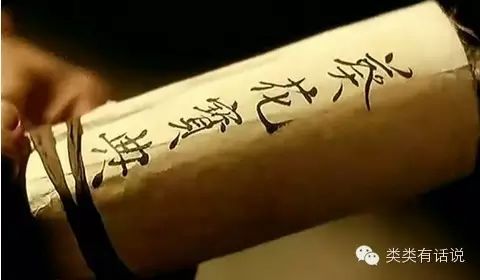 葵花寶典
类类有话说